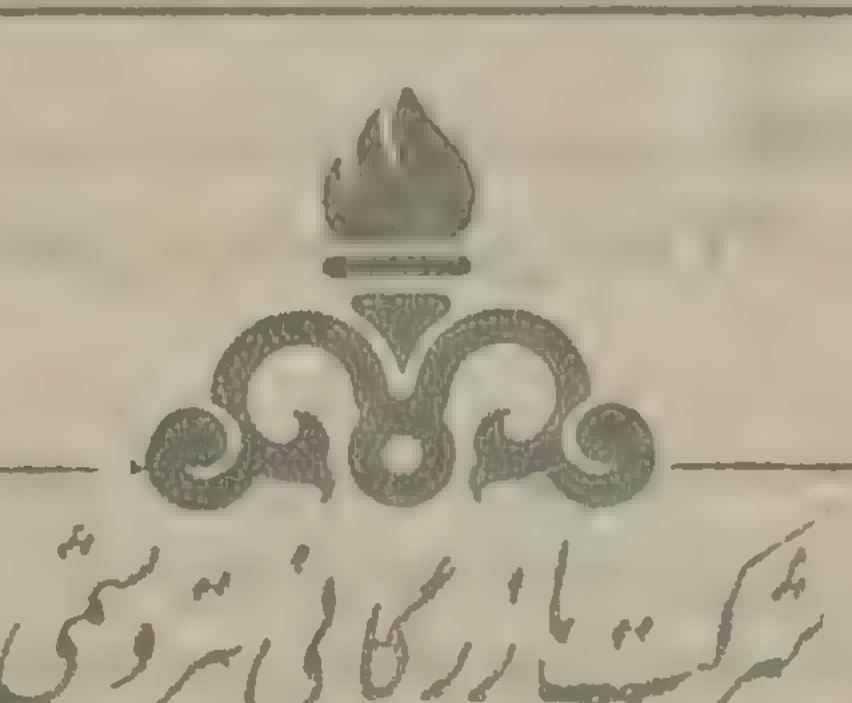 شرکت بازرگانی پتروشیمی